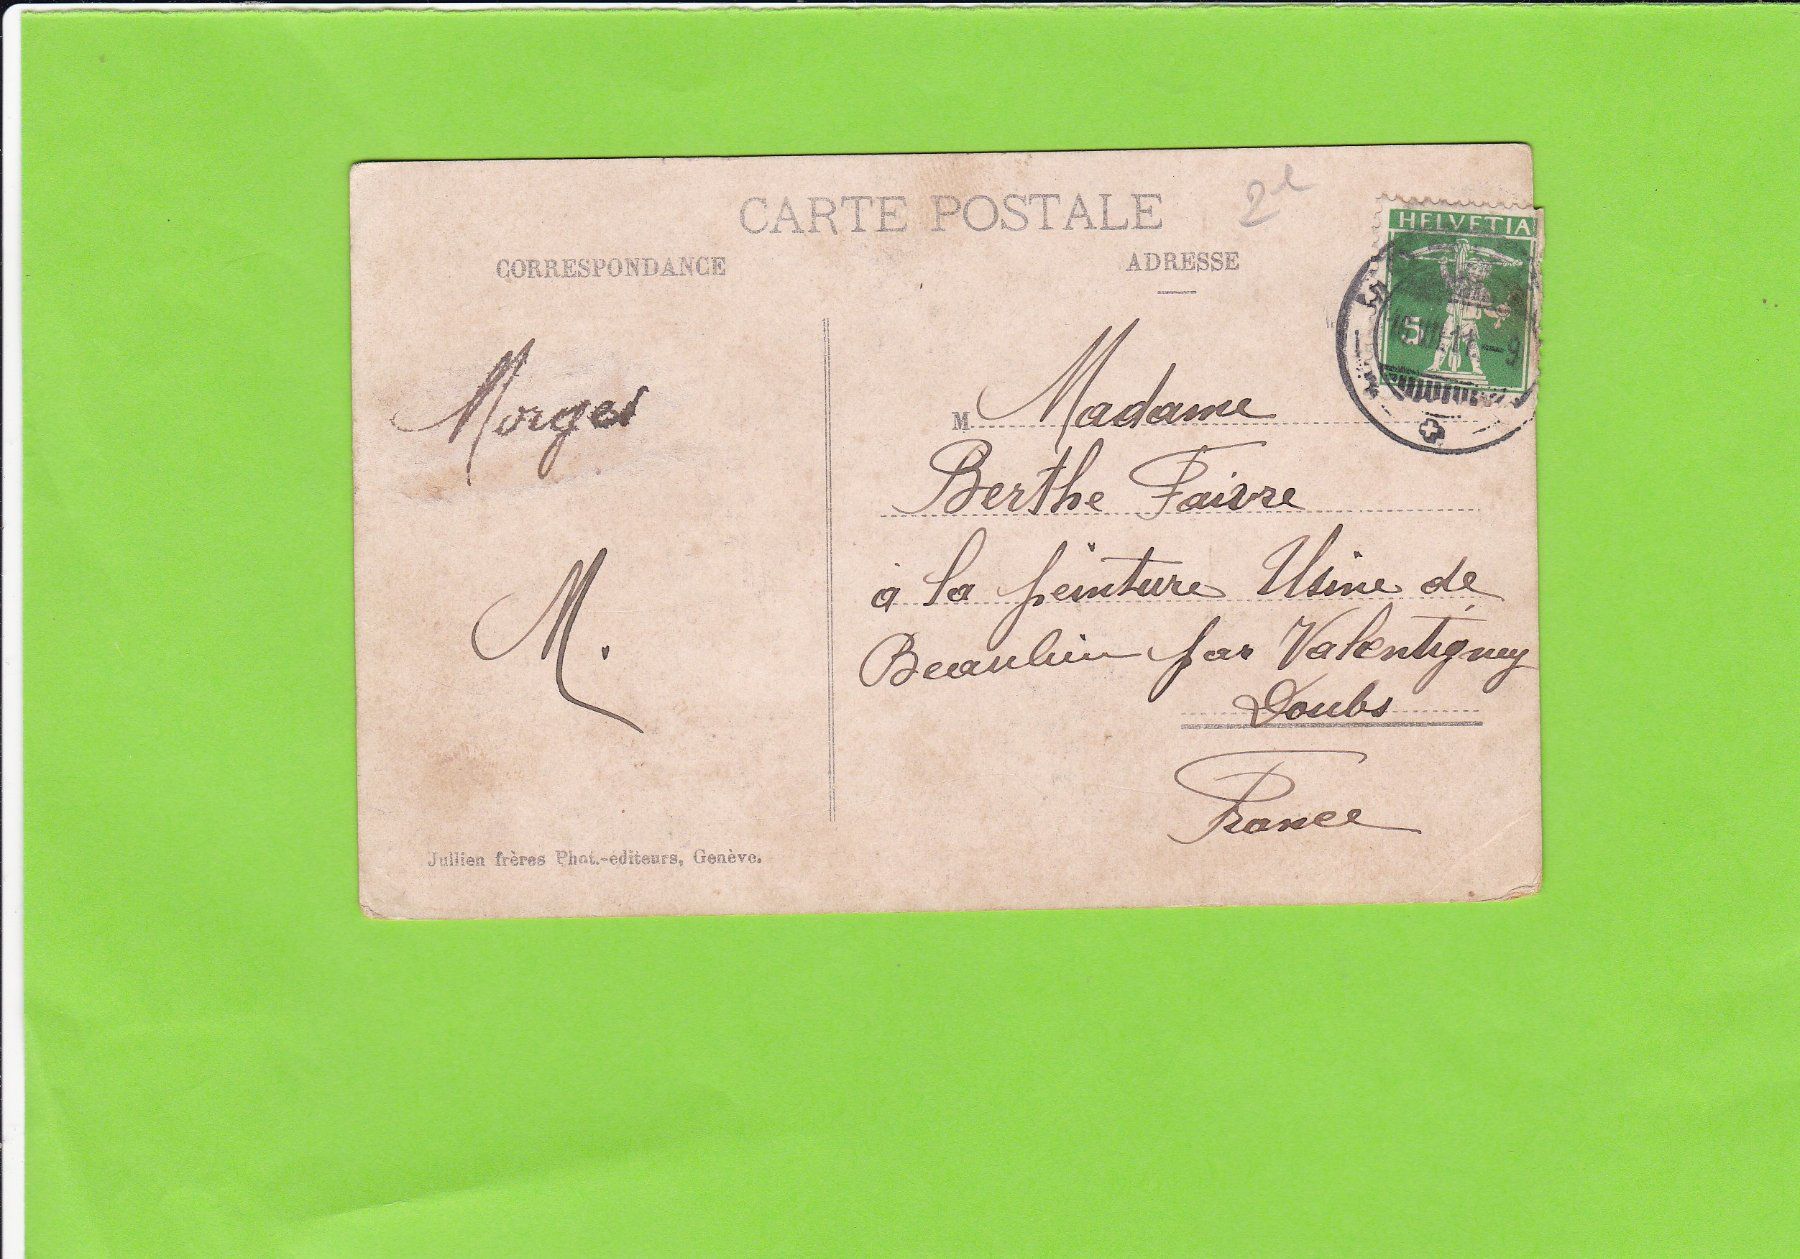 CARTE POSTALE
CORRESPONDANCE
ADRESSE
HELVETIA
5
Morges
M.
M Madame
Berthe Faivre
à la peinture Usine de
Beaulieu par Valentigney
Doubs
France
Jullien frères Phot.-editeurs, Genève.